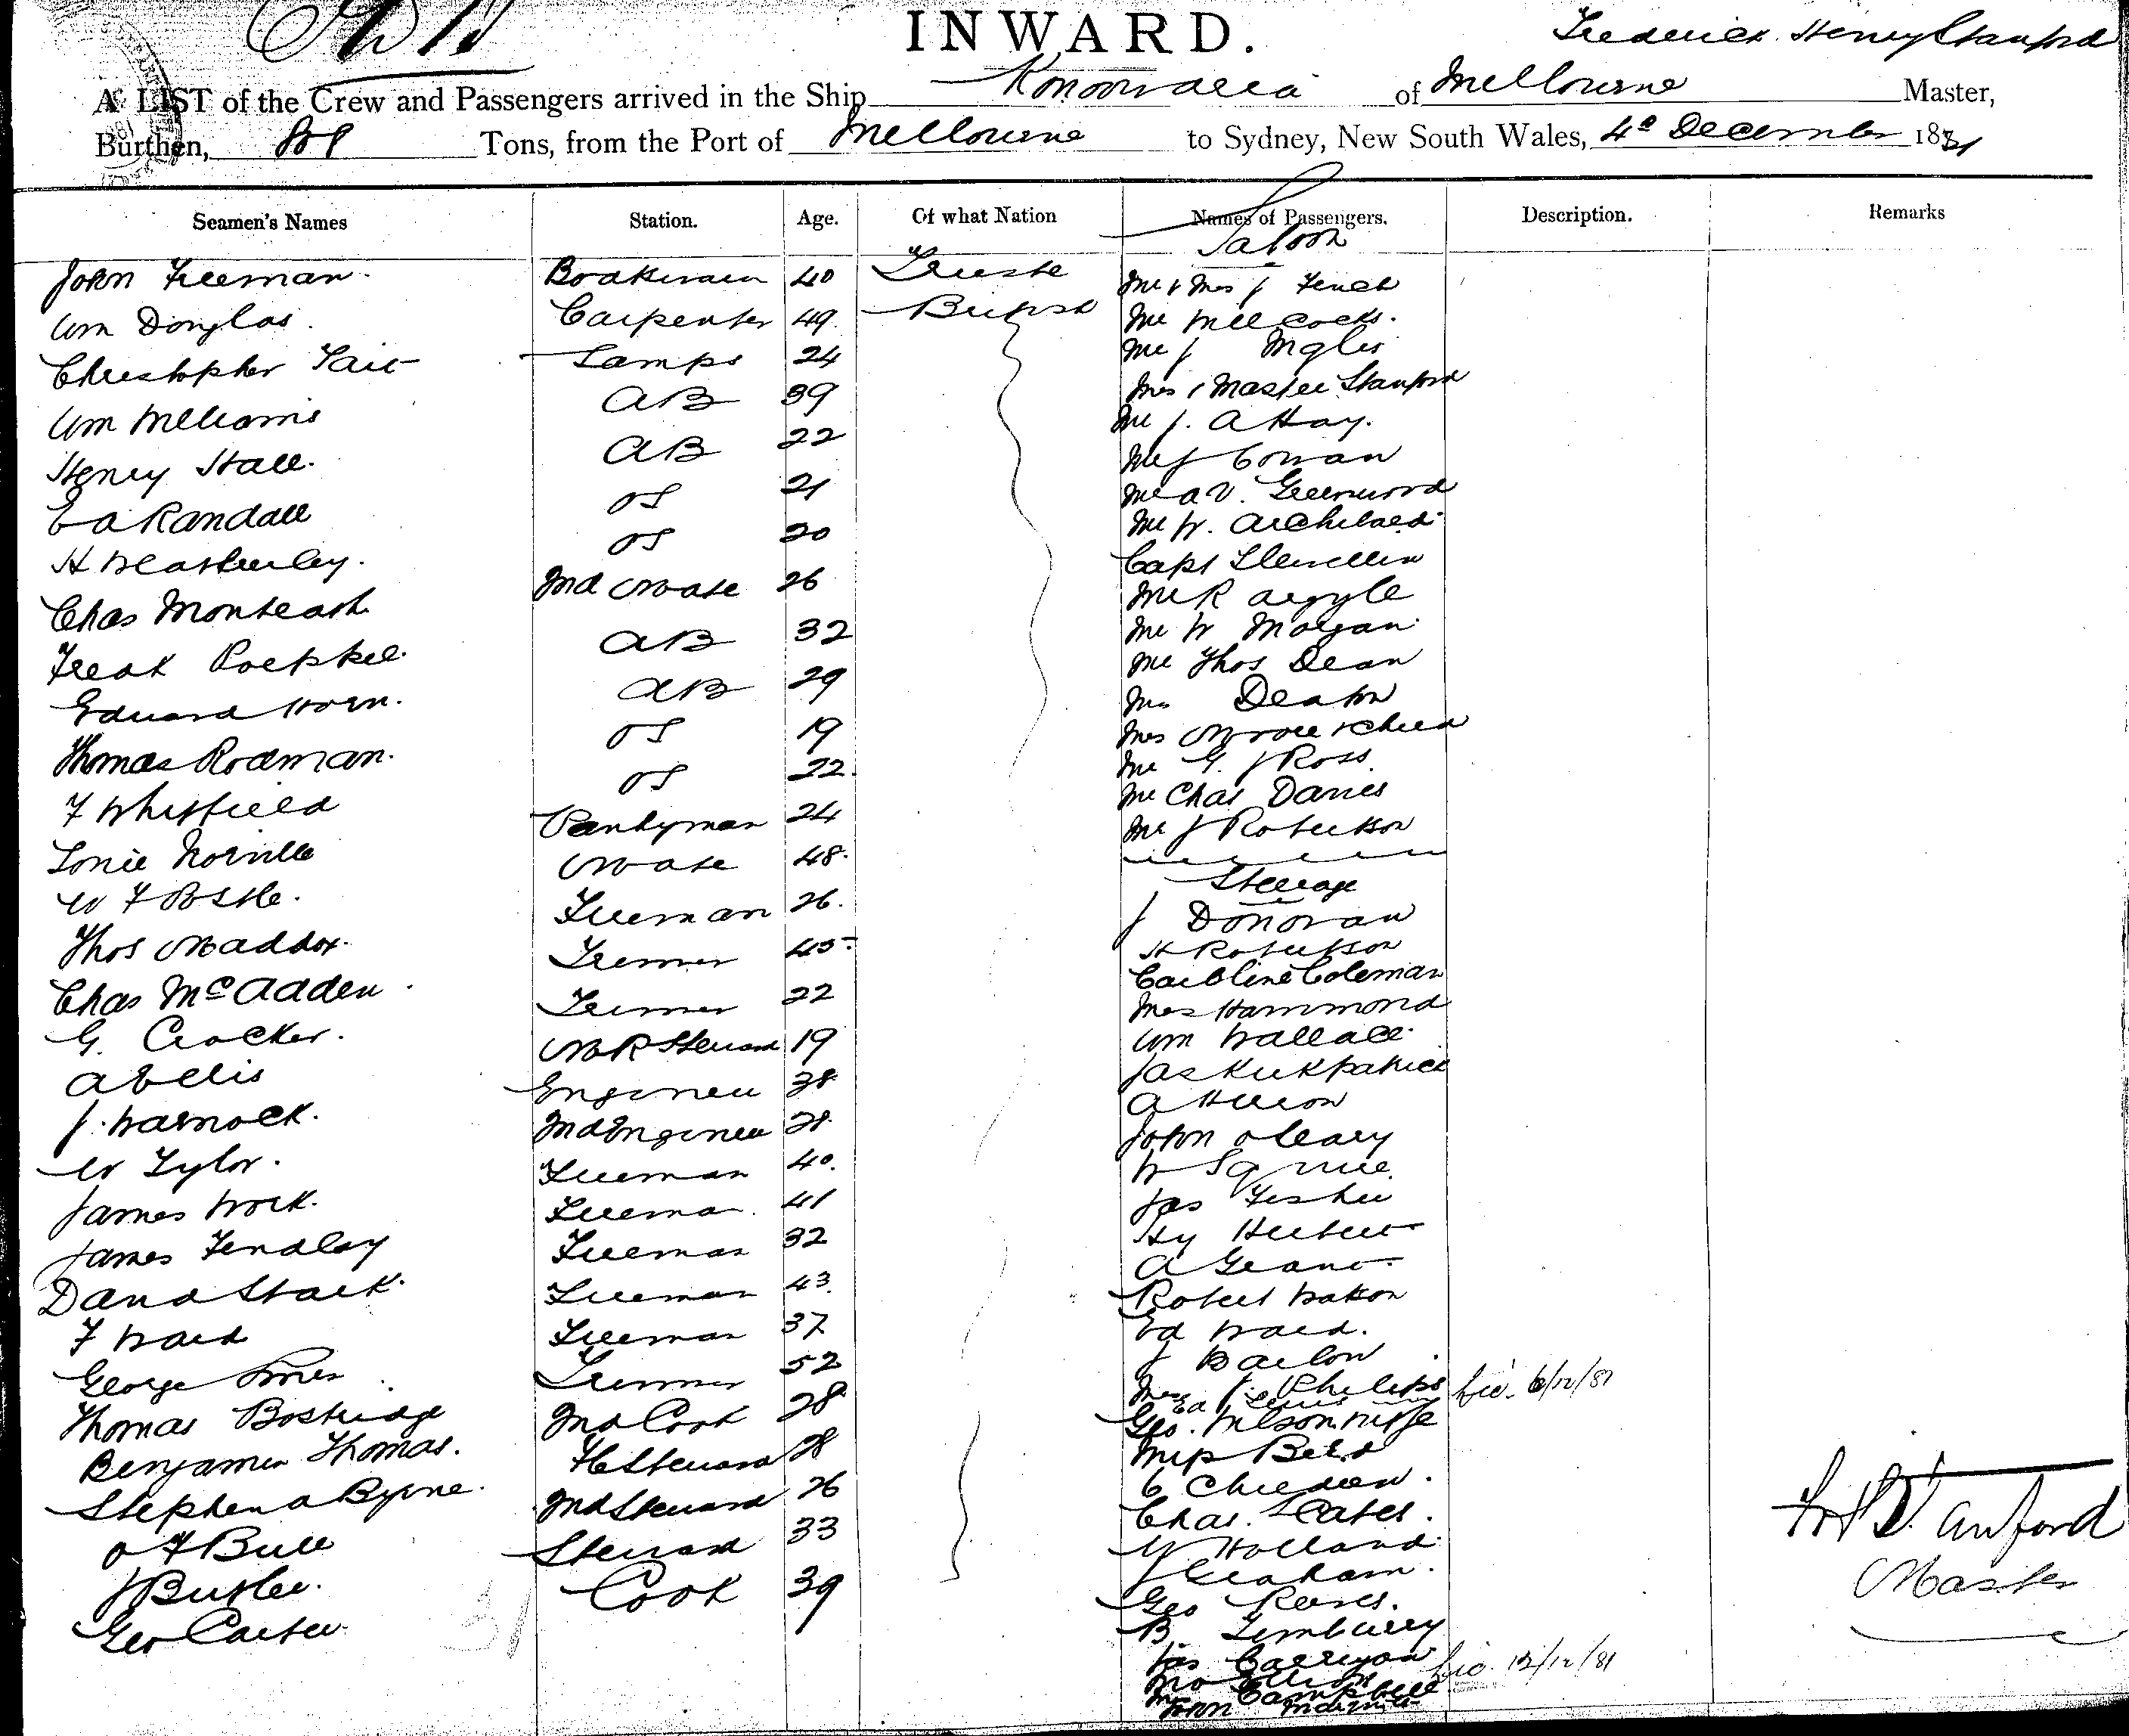 INWARD.
Frederick Henry Stanford
A LIST of the Crew and Passengers arrived in the Ship Konoowarra of Melbourne Master,
Burthen, Tons, from the Port of Melbourne to Sydney, New South Wales, 4th December 1881
Seamen's Names Station. Age. Of what Nation Names of Passengers. Description. Remarks
Saloon
John Freeman Boatswain 40 Trieste Mr & Mrs J Fench
Wm Douglas Carpenter 49 British Mr Willcocks
Christopher Tait Lamps 24 Mr J Inglis
Wm Williams AB 39 Mrs & Master Stanford
Henry Hall AB 22 Mr J. A Hay
E A Randall OS 21 Mr J Cowan
H Weatherley OS 20 Mr A V. Greenwood
Chas Monteath 2nd Mate 26 Mr W. Archibald
Capt Llewellin
AB 32 Mr R Argyle
Edward Horn AB 29 Mr W Morgan
Thomas Rodman OS 19 Mr Thos Dean
F Whitfield OS 22 Mrs Deakin
Pantryman 24 Mrs Moore & Child
W F Postle Mate 48 Mr G. J Ross
Thos Maddox Fireman 26 Mr Chas Davies
Chas McAdden Trimmer 45 Mr J Robertson
G. Crocker Trimmer 22 Steerage
A Ellis MR Steward 19 J Donovan
J. Warnock Engineer 38 H Robertson
W Tylor 2nd Engineer 28 Caroline Coleman
James Work Fireman 40 Mrs Hammond
James Findlay Fireman 41 Wm Wallace
David Stark Fireman 32 Jas Kirkpatrick
F Ward Fireman 43 A Heron
George Fireman 37 John O Leary
Thomas Bostridge Trimmer 52 W Squire
Benjamin Thomas 2nd Cook 28 Jas Fisher
Stephen A Byrne F C Steward 28 Hy Herbert
O F Bull 2nd Steward 26 A Grant
J Butler Steward 33 Robert Watson
Geo Carter Cook 39 Ed Ward
31
J Barlow
Mrs J. Philips 6/12/81
Ed Lewis
Geo. Wilson & wife
Miss Bird
6 Children
Chas. Cates
W Holland
J Graham
Geo Reeves
B Timbury
Jas Carrigan
Campbell 12/12/81
John
F H Stanford
Master